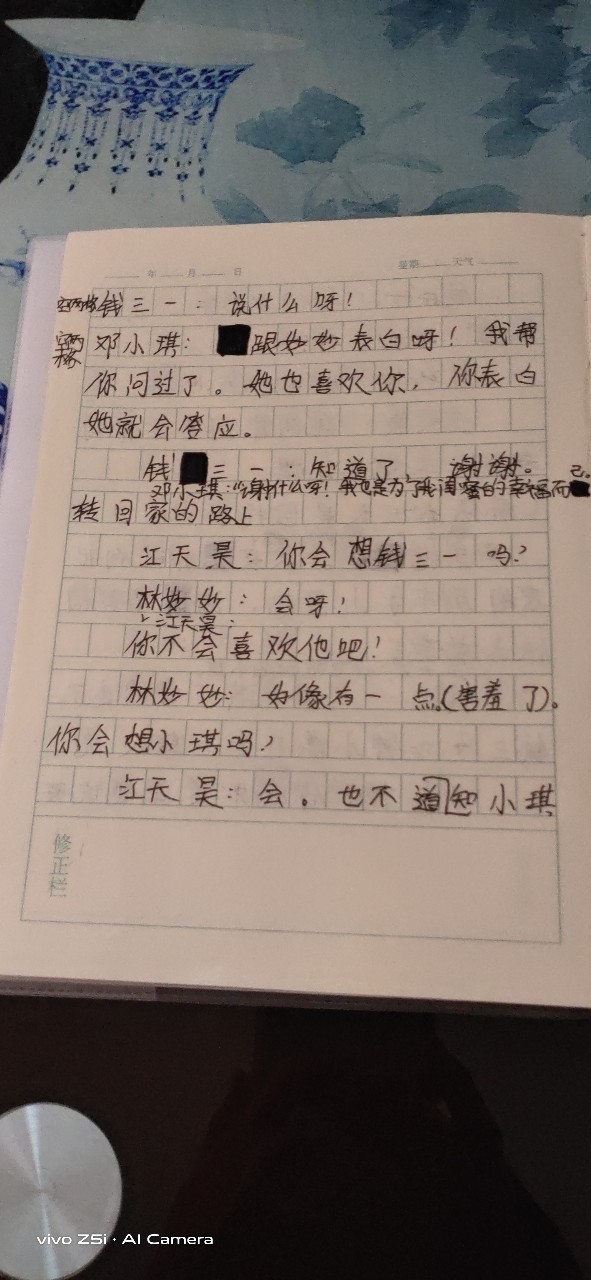 年 月 日 星期 天气
空两格钱三一：说什么呀！
空两格邓小琪：跟妙妙表白呀！我帮
你问过了。她也喜欢你，你表白
她就会答应。
钱三一：知道了，谢谢。
邓小琪：“谢什么呀！我也是为了我闺蜜的幸福而己。
转回家的路上
江天昊：你会想钱三一吗？
林妙妙：会呀！
江天昊：
你不会喜欢他吧！
林妙妙：好像有一点。（害羞了）。
你会想小琪吗？
江天昊：会。也不道知小琪
修正栏
vivo Z5i · AI Camera